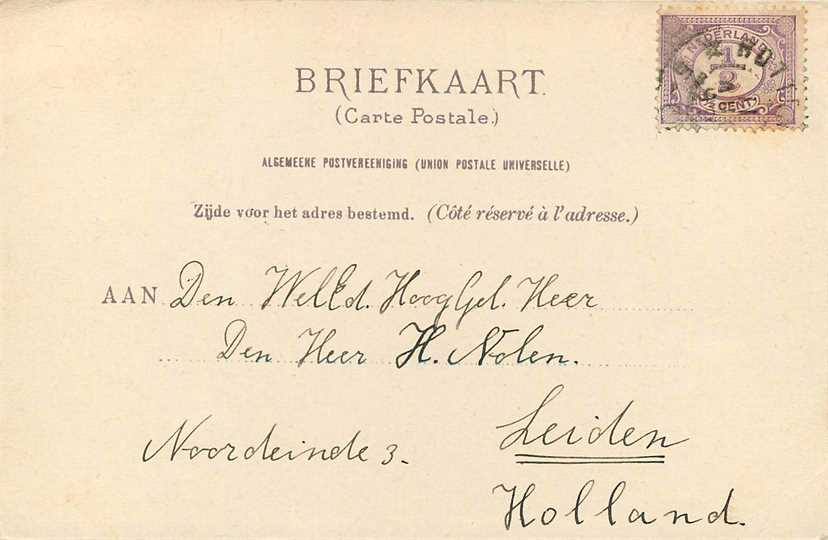 BRIEFKAART.
(Carte Postale.)
NEDERLAND
1/2
½ CENT
ALGEMEENE POSTVEREENIGING (UNION POSTALE UNIVERSELLE)
Zijde voor het adres bestemd. (Côté réservé à l'adresse.)
AAN Den WelEd. HoogGel. Heer
Den Heer H. Nolen.
Noordeinde 3. Leiden
Holland.